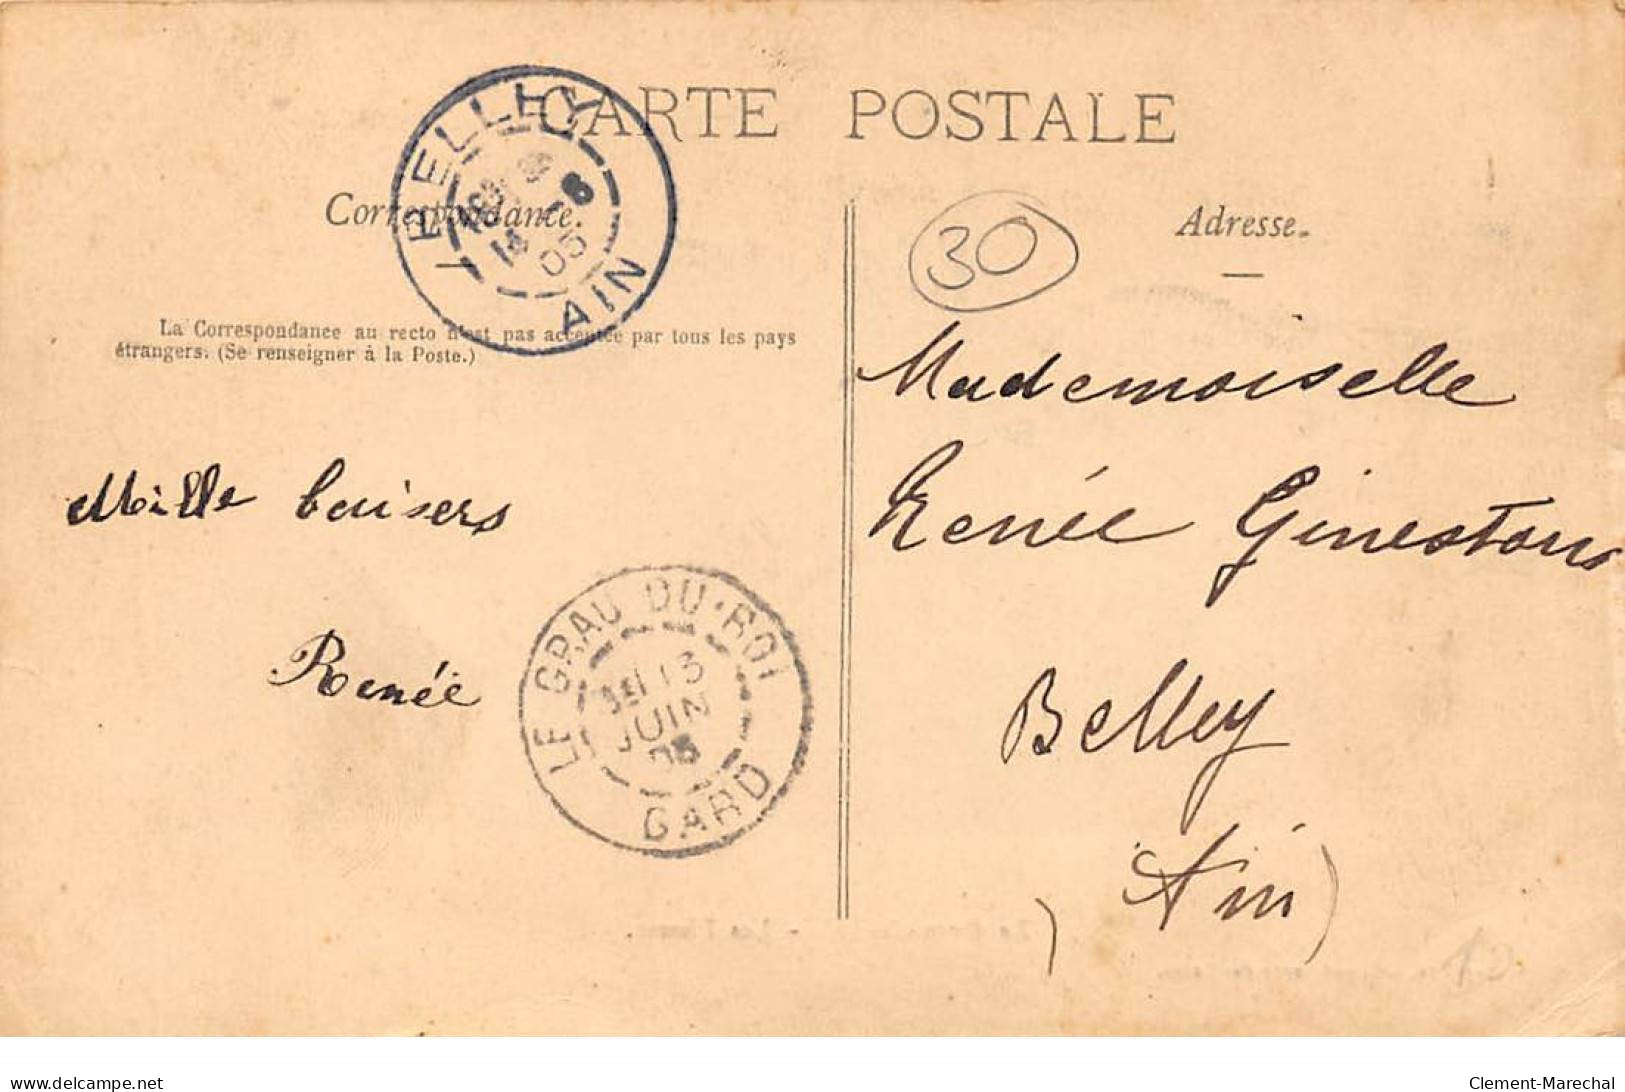 CARTE POSTALE
Correspondance.
Adresse.
BELLEY
05
AIN
30
La Correspondance au recto n'est pas acceptée par tous les pays
étrangers. (Se renseigner à la Poste.)
Mademoiselle
Mille baisers
Renée Ginestous
LE GRAU DU-ROI
13
JUIN
05
GARD
Renée
Belley
(Ain)
delcampe.net
Clement-Marechal